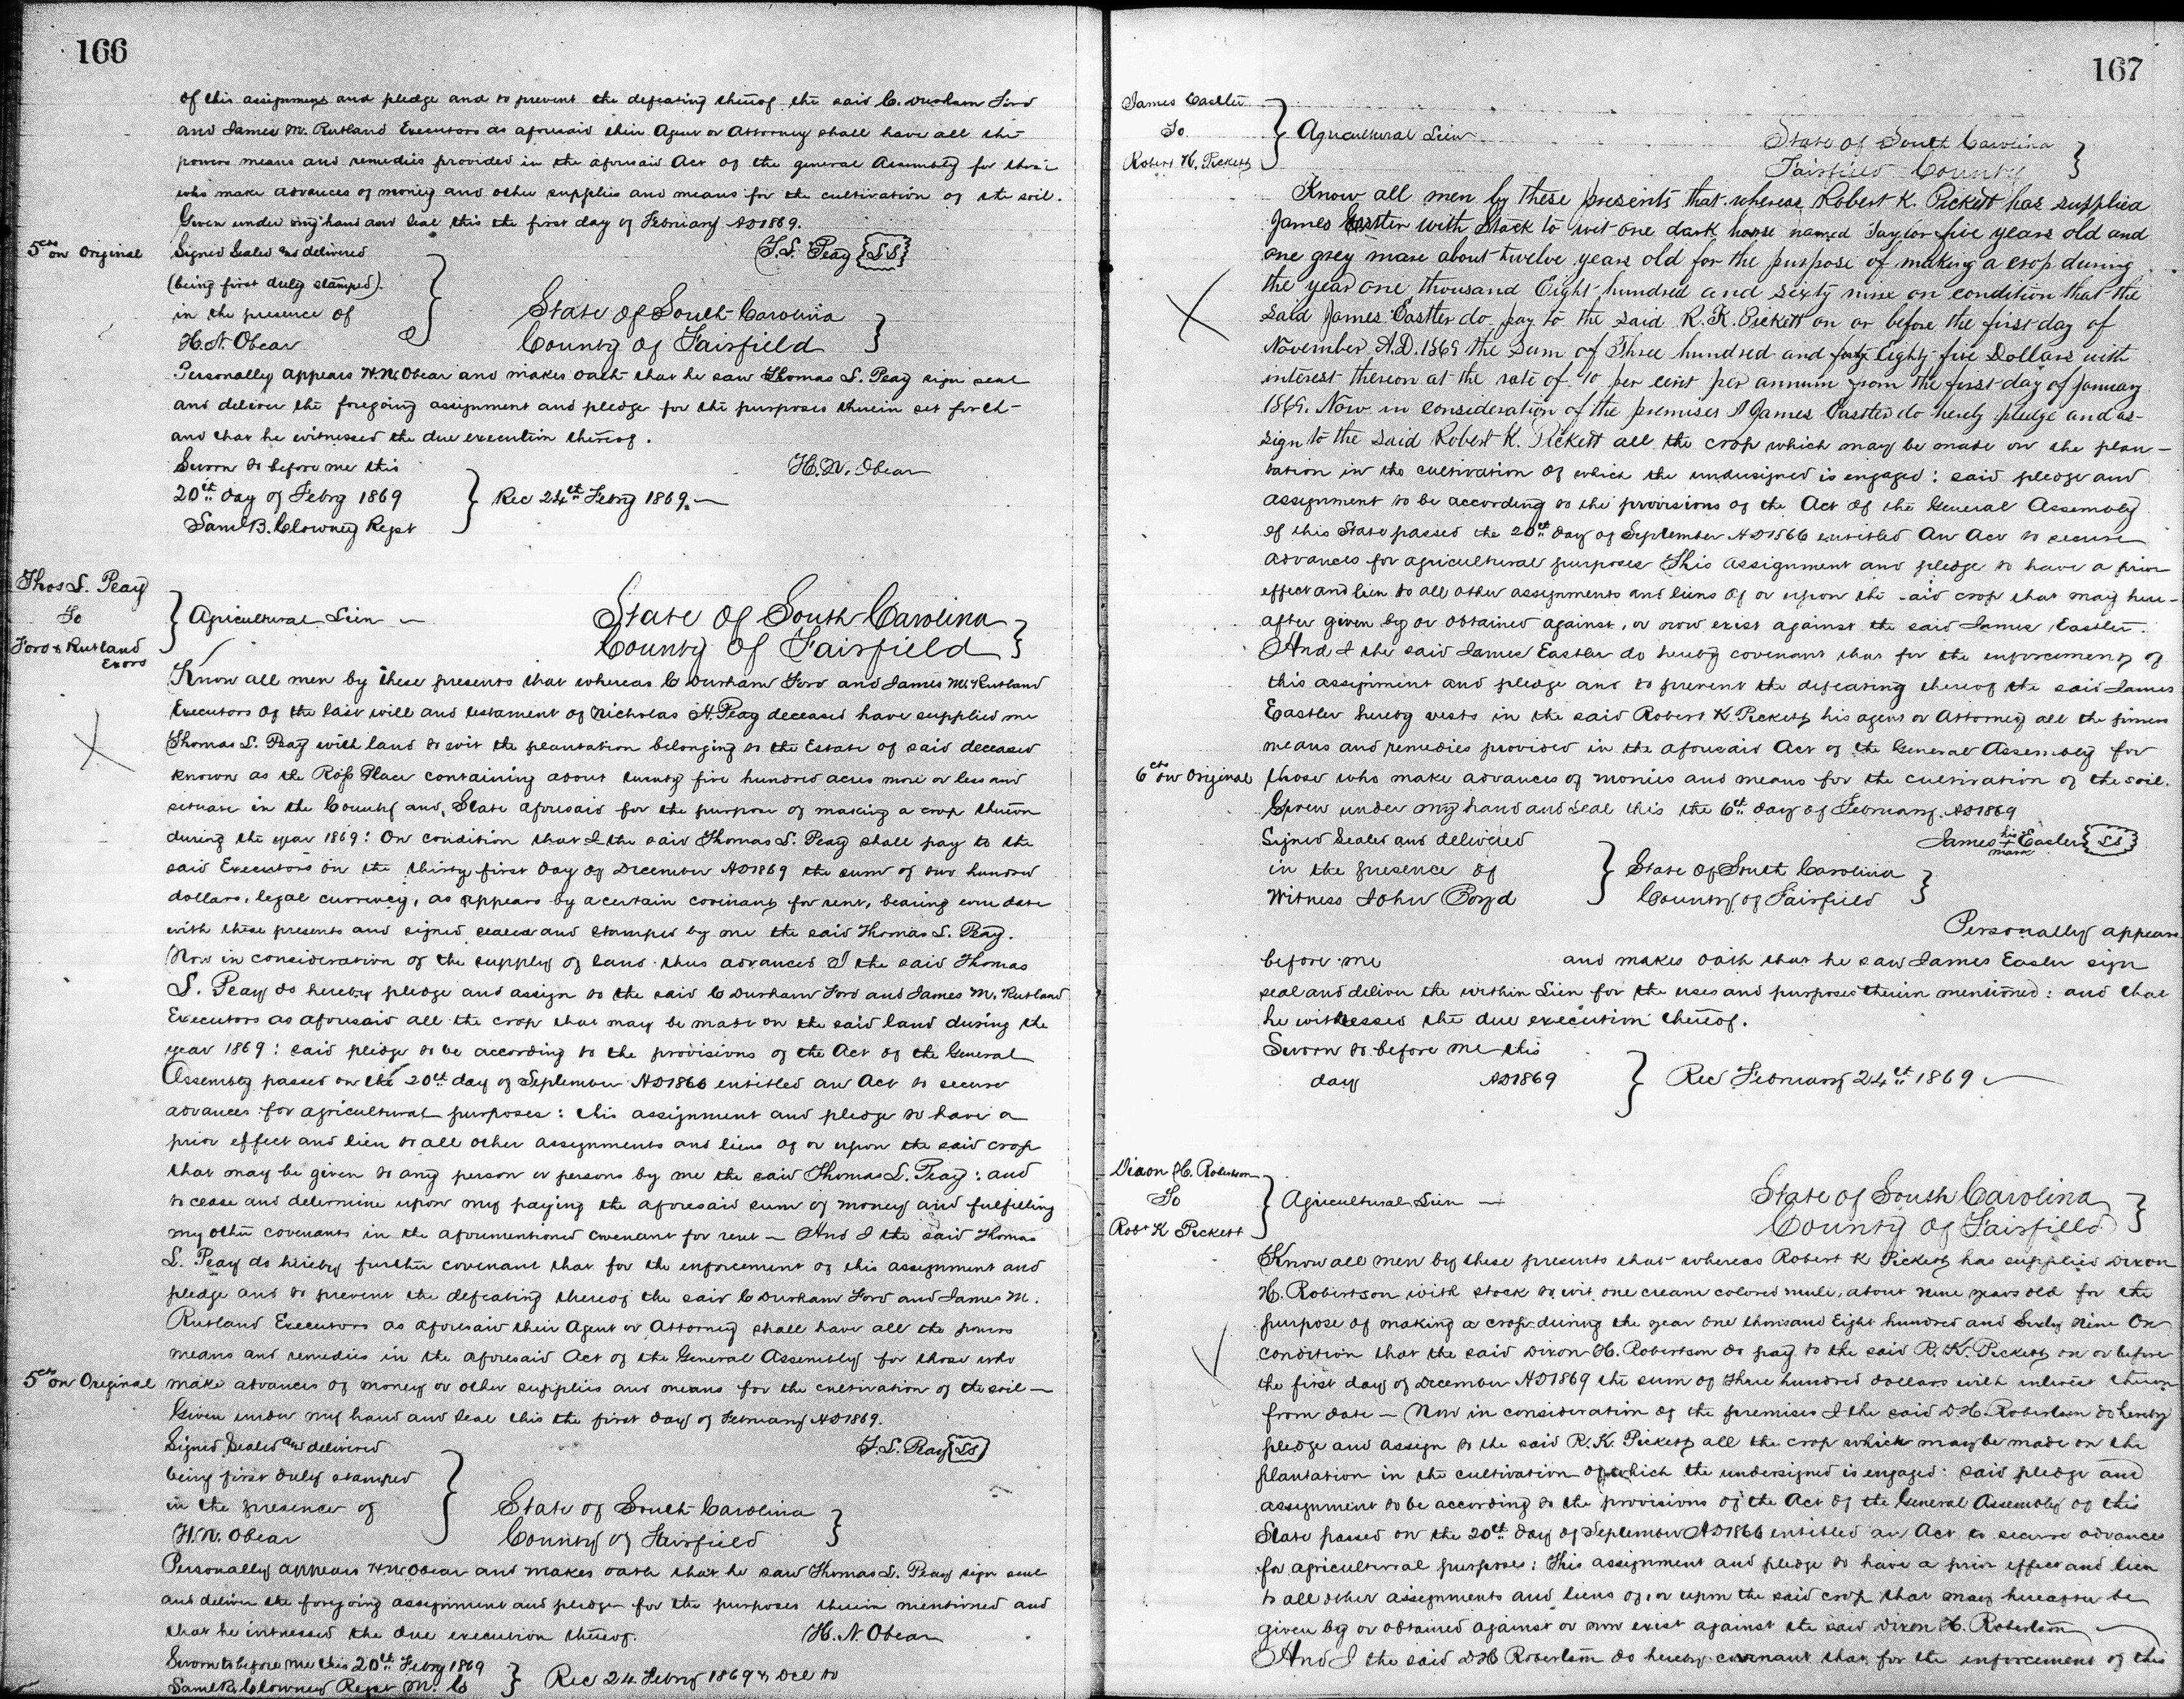 166
of this assignment and pledge and to prevent the defeating thereof the said C. Durham Ford
and James M. Rutland Executors as aforesaid their Agent or Attorney shall have all the
powers means and remedies provided in the aforesaid Act of the general Assembly for those
who make advances of money and other supplies and means for the cultivation of the soil.
Given under my hand and seal this the first day of February AD1869.
5cts on Original
Signed Sealed and delivered
T. S. Peay {LS}
(being first duly stamped)
in the presence of
State of South Carolina }
H. N. Obear
County of Fairfield
Personally appears H. N. Obear and makes oath that he saw Thomas S. Peay sign seal
and deliver the foregoing assignment and pledge for the purposes therein set forth
and that he witnessed the due execution thereof.
Sworn to before me this
H. N. Obear
20th day of Febry 1869 } Rec 24th Febry 1869.
Saml B. Clowney Regst
Thos S. Peay
To } Agricultural Lien
State of South Carolina }
Ford & Rutland
Exors
County of Fairfield
Know all men by these presents that whereas C Durham Ford and James M. Rutland
Executors of the last will and testament of Nicholas A. Peay deceased have supplied me
Thomas S. Peay with land to wit the plantation belonging to the Estate of said deceased
known as the Ross Place containing about twenty five hundred acres more or less and
situate in the County and State aforesaid for the purpose of making a crop thereon
during the year 1869: On condition that I the said Thomas S. Peay shall pay to the
said Executors on the thirty first day of December AD1869 the sum of one hundred
dollars, legal currency, as appears by a certain covenant for rent, bearing even date
with these presents and signed sealed and stamped by me the said Thomas S. Peay.
Now in consideration of the supply of land thus advanced I the said Thomas
S. Peay do hereby pledge and assign to the said C Durham Ford and James M. Rutland
Executors as aforesaid all the crop that may be made on the said land during the
year 1869: said pledge to be according to the provisions of the Act of the General
Assembly passed on the 20th day of September AD1866 entitled an Act to secure
advances for agricultural purposes: this assignment and pledge to have a
prior effect and lien to all other assignments and liens of or upon the said crop
that may be given to any person or persons by me the said Thomas S. Peay: and
to cease and determine upon my paying the aforesaid sum of money and fulfilling
my other covenants in the aforementioned covenant for rent — And I the said Thomas
S. Peay do hereby further covenant that for the enforcement of this assignment and
pledge and to prevent the defeating thereof the said C Durham Ford and James M.
Rutland Executors as aforesaid their Agent or Attorney shall have all the powers
means and remedies in the aforesaid Act of the General Assembly for those who
5cts on Original
make advances of money or other supplies and means for the cultivation of the soil —
Given under my hand and seal this the first day of February AD1869.
Signed Sealed and delivered
T. S. Peay {LS}
being first duly stamped
in the presence of
State of South Carolina }
H. N. Obear
County of Fairfield
Personally appears H. N. Obear and makes oath that he saw Thomas S. Peay sign seal
and deliver the foregoing assignment and pledge for the purposes therein mentioned and
that he witnessed the due execution thereof.
H. N. Obear
Sworn to before me this 20th Febry 1869
Saml B. Clowney Regst M. C } Rec 24 Febry 1869 & Deld to
167
James Eastler
To } Agricultural Lien
State of South Carolina }
Robert H. Pickett
Fairfield County
Know all men by these presents that whereas Robert K. Pickett has supplied
James Eastler with Stock to wit one dark horse named Taylor five years old and
one grey mare about twelve years old for the purpose of making a crop during
the year one thousand Eight hundred and sixty nine on condition that the
said James Eastler do pay to the said R. K. Pickett on or before the first day of
November A.D. 1869 the sum of Three hundred and forty Eighty five Dollars with
interest thereon at the rate of 10 per cent per annum from the first day of January
1869. Now in consideration of the premises I James Eastler do hereby pledge and as-
sign to the said Robert K. Pickett all the crop which may be made on the plan-
tation in the cultivation of which the undersigned is engaged: said pledge and
assignment to be according to the provisions of the Act of the General Assembly
of this State passed the 20th day of September AD1866 entitled An Act to secure
advances for agricultural purposes This assignment and pledge to have a prior
effect and lien to all other assignments and liens of or upon the said crop that may here-
after given by or obtained against, or now exist against the said James Eastler.
And I the said James Eastler do hereby covenant that for the enforcement of
this assignment and pledge and to prevent the defeating thereof the said James
Eastler hereby vests in the said Robert K. Pickett his agent or Attorney all the powers
means and remedies provided in the aforesaid Act of the General Assembly for
6cts on Original
those who make advances of monies and means for the cultivation of the soil.
Given under my hand and seal this the 6th day of February AD1869
Signed Sealed and delivered
James his + mark Easler {LS}
in the presence of
State of South Carolina }
Witness John Boyd
County of Fairfield
Personally appears
before me and makes oath that he saw James Easler sign
seal and deliver the within Lien for the uses and purposes therein mentioned: and that
he witnessed the due execution thereof.
Sworn to before me this
day AD1869 } Rec February 24th 1869
Dixon H. Robertson
To } Agricultural Lien —
State of South Carolina }
Robt K Pickett
County of Fairfield
Know all men by these presents that whereas Robert K Pickett has supplied Dixon
H. Robertson with stock to wit one cream colored mule, about nine years old for the
purpose of making a crop during the year one thousand Eight hundred and Sixty Nine On
condition that the said Dixon H. Robertson do pay to the said R. K. Pickett on or before
the first day of December AD1869 the sum of three hundred dollars with interest thereon
from date — Now in consideration of the premises I the said D. H. Robertson do hereby
pledge and assign to the said R. K. Pickett all the crop which may be made on the
plantation in the cultivation of which the undersigned is engaged: said pledge and
assignment to be according to the provisions of the Act of the General Assembly of this
State passed on the 20th day of September AD1866 entitled an Act to secure advances
for agricultural purposes: This assignment and pledge to have a prior effect and lien
to all other assignments and liens of, or upon the said crop that may hereafter be
given by or obtained against or now exist against the said Dixon H. Robertson
And I the said D H Robertson do hereby covenant that for the enforcement of this